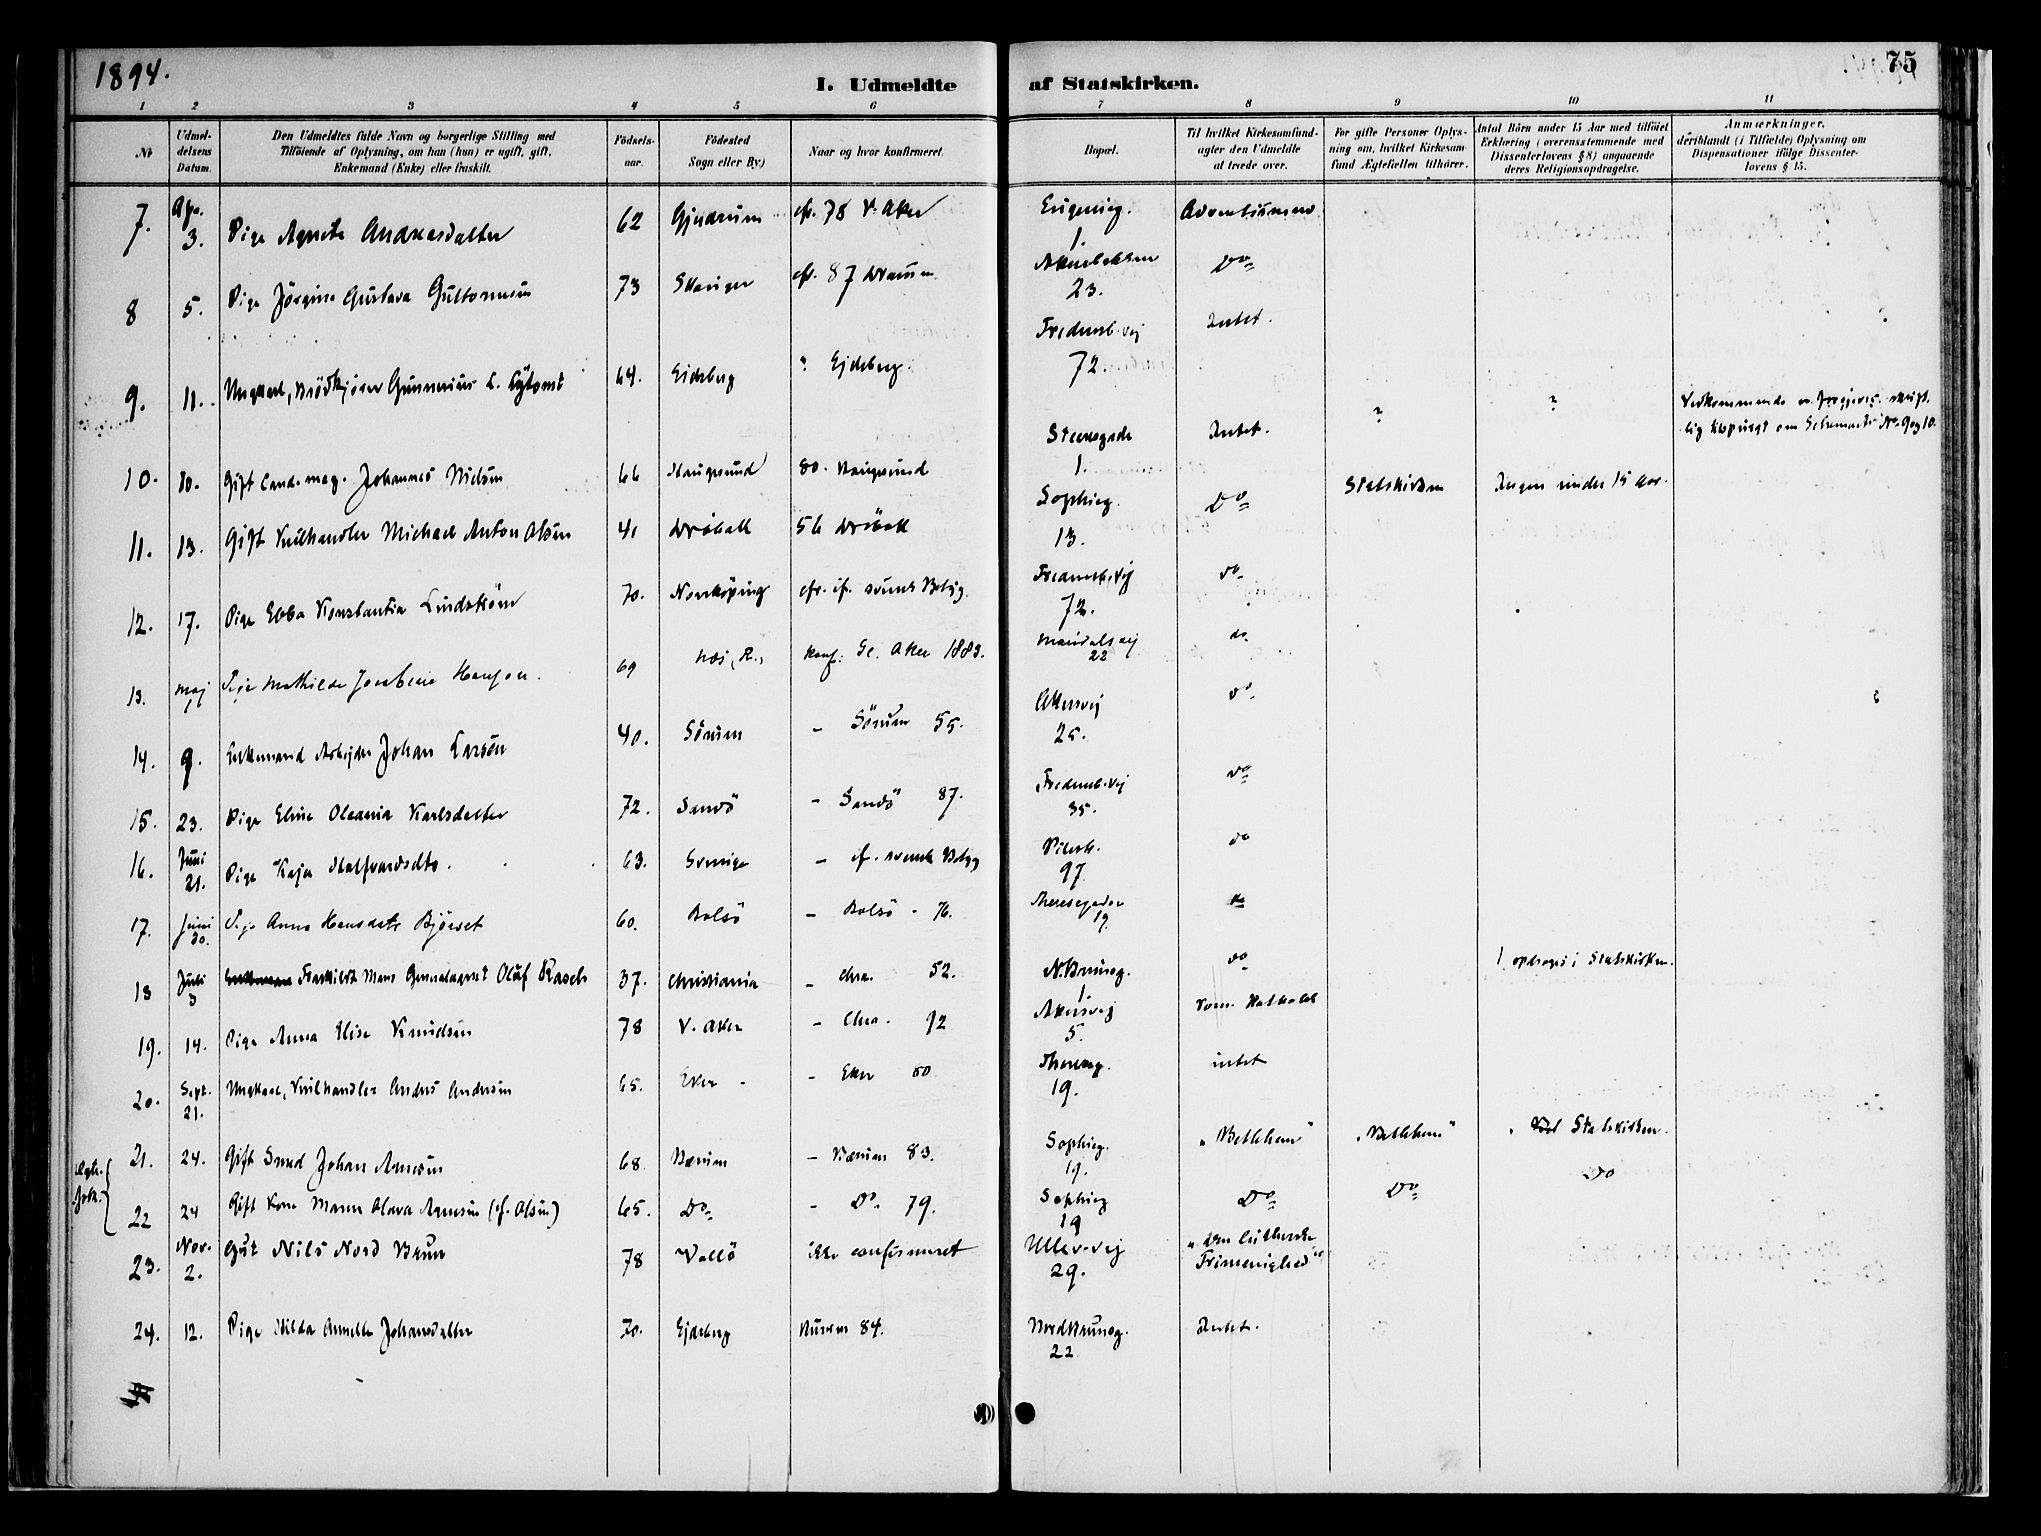 1894.
75
I. Udmeldte af Statskirken.
1 2 3 4 5 6 7 8 9 10 11
No
Udmel-
delsens
Datum.
Den Udmeldtes fulde Navn og borgerlige Stilling med
Tilföiende af Oplysning, om han (hun) er ugift, gift,
Enkemand (Enke) eller fraskilt.
Födsels-
aar.
Födested
Sogn eller By.)
Naar og hvor konfirmeret.
Bopæl.
Til hvilket Kirkesamfund-
agter den Udmeldte
at træde over.
For gifte Personer Oplys-
ning om, hvilket Kirkesam-
fund Ægtefællen tilhører.
Antal Börn under 15 Aar med tilföiet
Erklæring (overensstemmende med
Dissenterlovens § 8) angaaende
deres Religionsopdragelse.
Anmærkninger,
deriblandt (i Tilfælde) Oplysning om
Dispensationer ifölge Dissenter-
lovens § 15.
7. Apr. 3. Pige Agnete Andreasdatter 62 Gjerdrum cfr. 78 V. Aker Eugenieg. 1. Adventismen
8 5. Pige Jörgine Gustava Guttormsen 73 Skoger cfr. 87 Dramm. Akersbakken 23. Do
9. 11. Ungkarl, Brödkjører Gunnerius L. 64. Eidsberg ? Ejdsberg Fredensb. vej 72. Intet.
10. 10. Gift Cand. mag. Johannes Nielsen 66 Haugesund 80. Haugesund Steensgade 1. Intet. ? ? Vedkommende er forgjæves skrift-
lig adspurgt om Schemaets No. 9 og 10.
11. 13. Gift Vedhandler Michael Anton Olsen 41 Dröbak 56 Dröbak Sophieg. 13. Do Statskirken Ingen under 15 Aar.
12. 17. Pige Ebba Konstantia Lindström 70. Norrköping cfr. if. svensk Betyg. Fredensb. vej 72. do
13. Maj 1 Pige Mathilde Jacobine Hansen. 69 Næs, R., Konf: Gl. Aker 1883. Maridalsvej 22 do
14. 9. Enkemand Arbejder Johan Larsen 40. Sörum – Sörum 55. Akersvej 25. do
15. 23. Pige Eline Oleania Karlsdatter 72. Sandö – Sandö 87. Fredensb. vej 35. do
16. Juni 21. Pige Kaja Halfvardsdtr. 63. Sverige – if. svensk Betyg Pilestr. 97 do
17. Juni 30. Pige Anna Hansdatr Björset 60. Bolsö – Bolsö - 76. Theresegaden 19. do
18 Juli 3 Fraskildt Mand Generalagent Oluf Rasch 37. Christiania – Chra. 52. N. Brunsg. 1. do 1 opdrages i Statskirken.
19. 14. Pige Anna Elise Knudsen 78 V. Aker – Chra. 92 Akersvej 5. Rom. Katholsk
20. Sept. 21. Ungkarl, Vedhandler Anders Andersen 65. Eker – Eker 80 Thereseg. 19. intet
21. 24. Gift Smed Johan Arnesen 68 Bærum – Bærum 83. Sophieg. 19. „Bethlehem" „Bethlehem" Statskirken.
22 24 Gift Kone Maren Olava Arnesen (f. Olsen) 65. Do – Do. 79. Sophieg 19 Do Do Do
23. Nov. 2. Gut Nils Nord Brun 78 Vallö ikke confirmeret Ullev. vej 29. „den lutherske
Frimenighed"
24. 12. Pige Hilda Annette Johansdatter 70. Ejdsberg Hurum 84. Nord. Brunsg. 22 Intet.